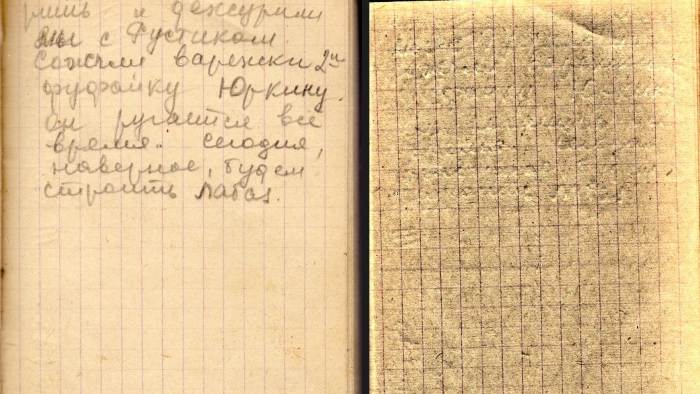 дежурили
мы с Рустиком
сожгли варежки 2ую
фуфайку Юркину.
он ругается все
время. сегодня,
наверное, будем
строить лабаз.